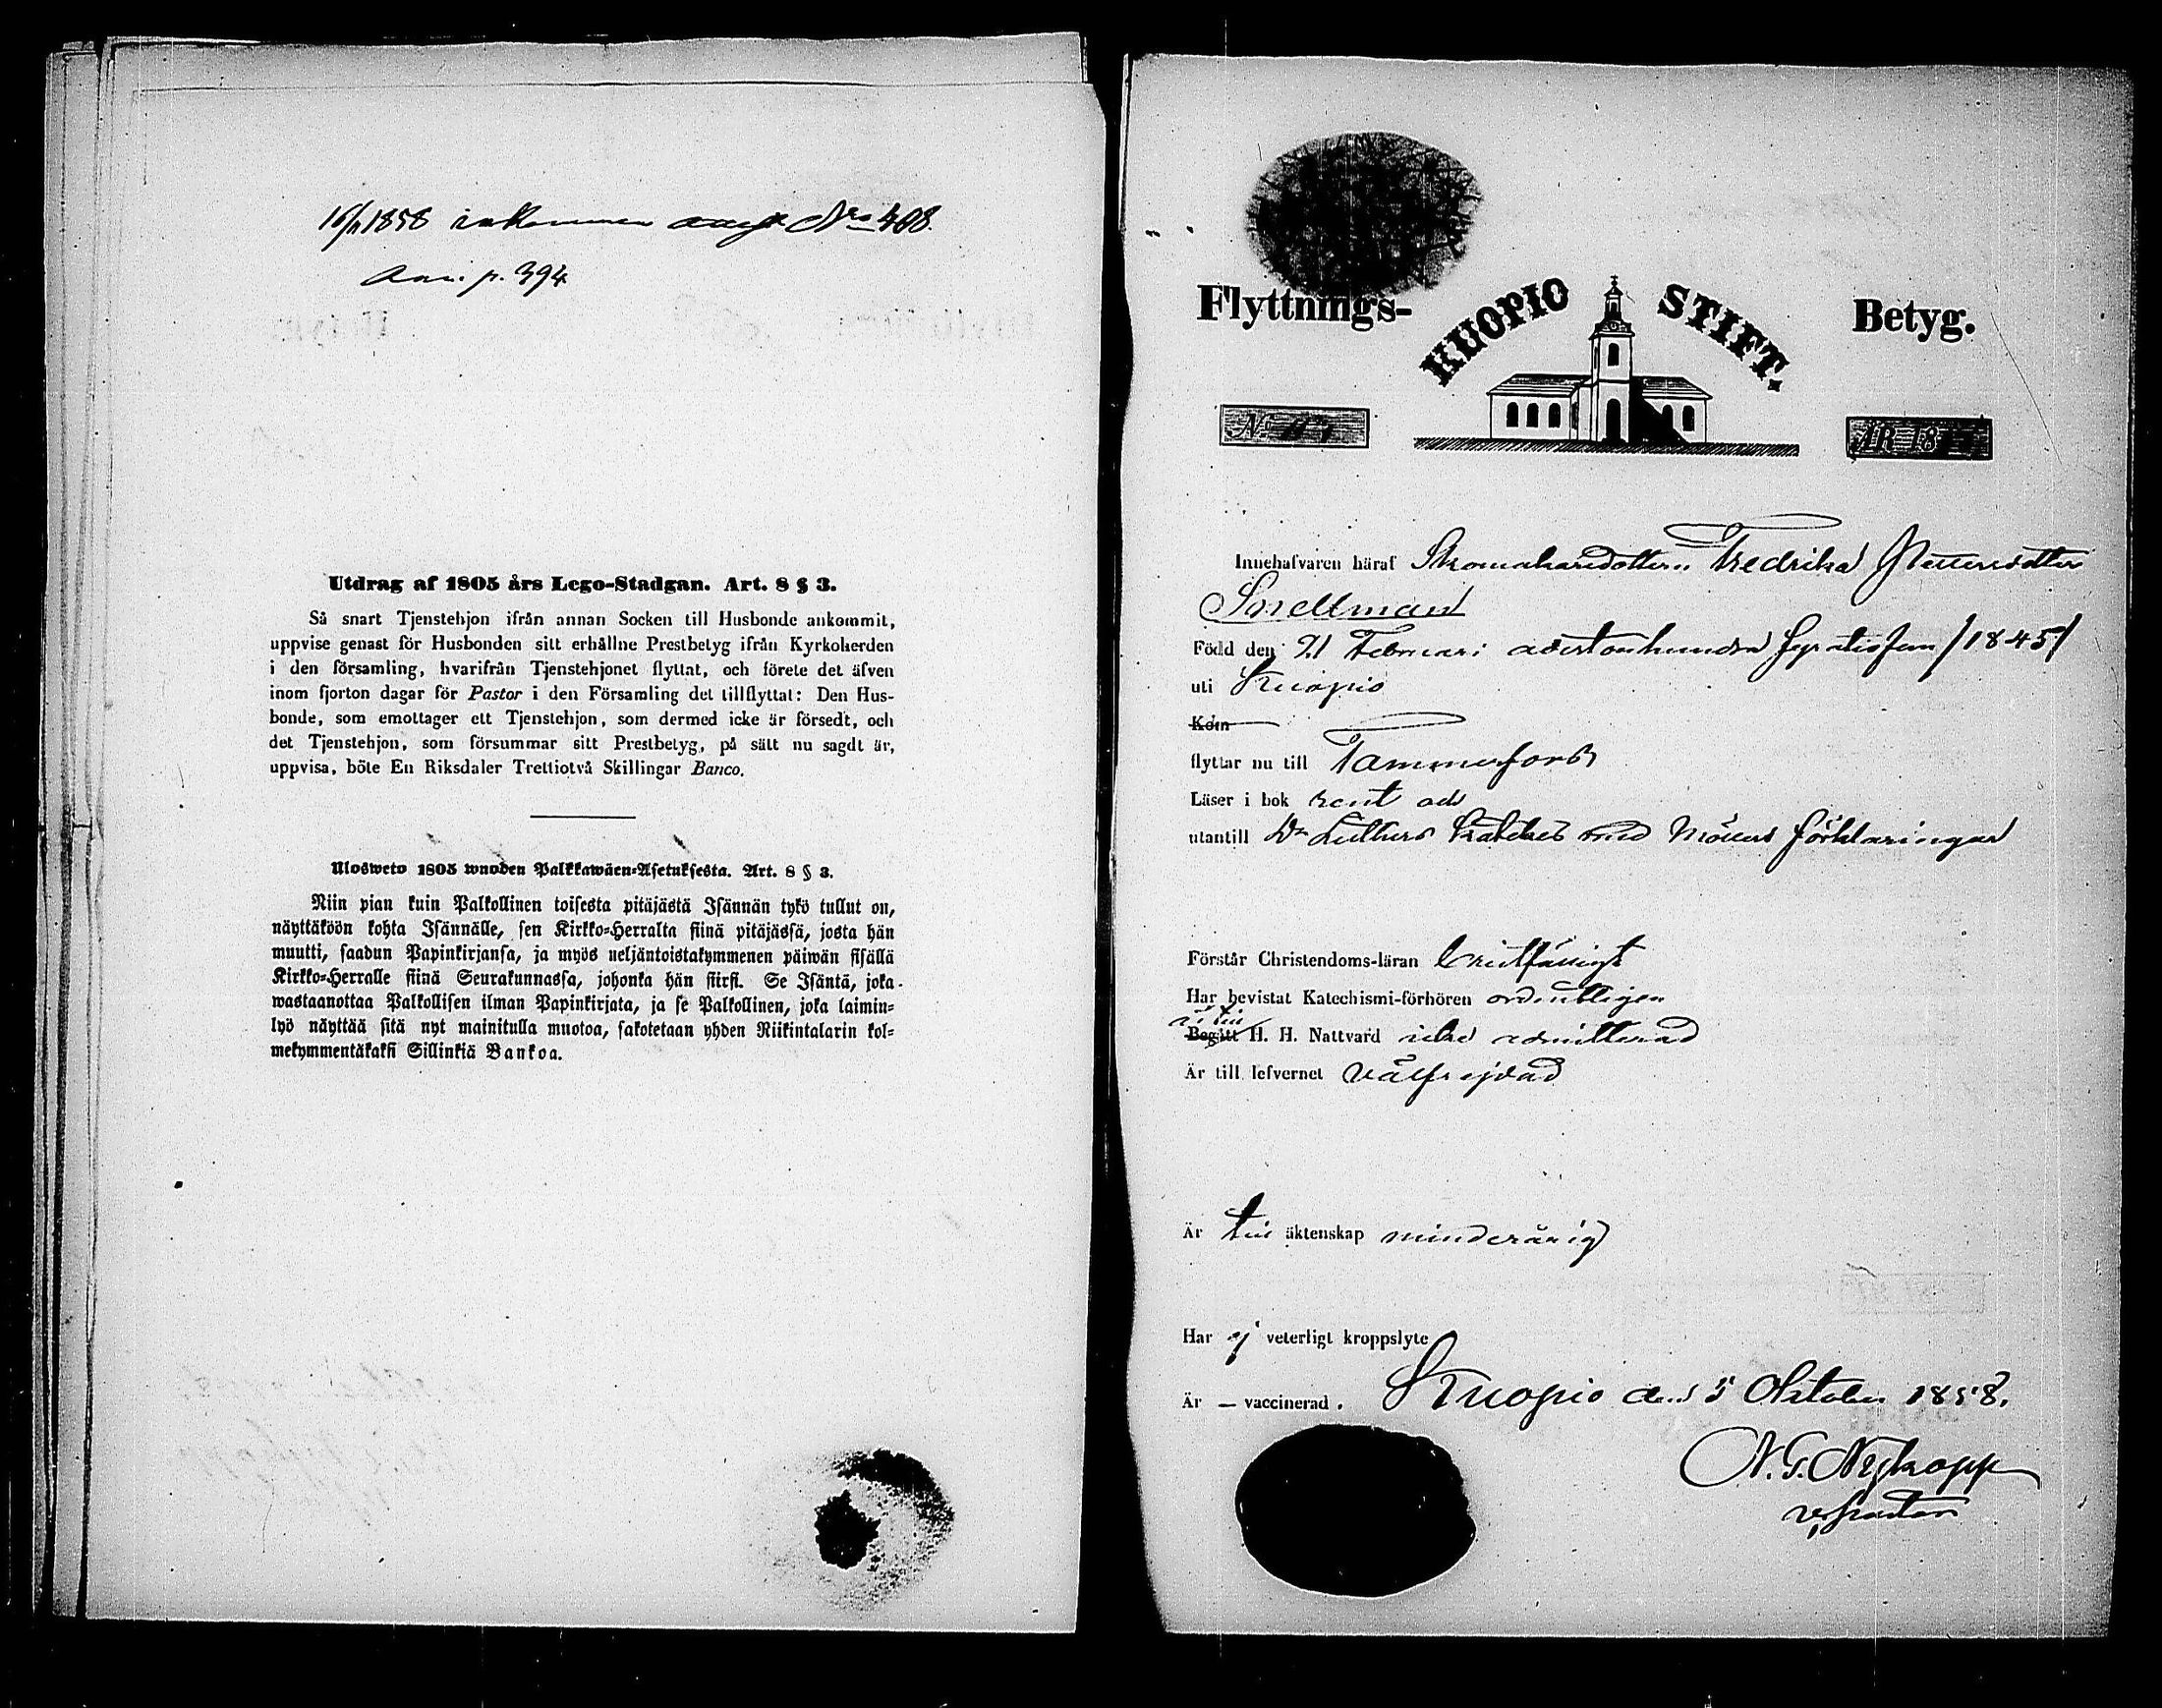 16/11 1858 inkommen Nro 408.
p. 394
Utdrag af 1805 års Lego-Stadgan. Art. 8 § 3.
Så snart Tjenstehjon ifrån annan Socken till Husbonde ankommit,
uppvise genast för Husbonden sitt erhållne Prestbetyg ifrån Kyrkoherden
i den församling, hvarifrån Tjenstehjonet flyttat, och förete det äfven
inom fjorton dagar för Pastor i den Församling det tillflyttat: Den Hus-
bonde, som emottager ett Tjenstehjon, som dermed icke är försedt, och
det Tjenstehjon, som försummar sitt Prestbetyg, på sätt nu sagdt är,
uppvisa, böte En Riksdaler Trettiotvå Skillingar Banco.
Ulosweto 1805 wuoden Palkkawäen-Asetuksesta. Art. 8 § 3.
Niin pian kuin Palkollinen toisesta pitäjästä Isännän tykö tullut on,
näyttäköön kohta Isännälle, sen Kirkko-Herralta siinä pitäjässä, josta hän
muutti, saadun Papinkirjansa, ja myös neljäntoistakymmenen päiwän sisällä
Kirkko-Herralle siinä Seurakunnassa, johonka hän siirsi. Se Isäntä, joka
wastaanottaa Palkollisen ilman Papinkirjata, ja se Palkollinen, joka laimin-
lyö näyttää sitä nyt mainitulla muotoa, sakotetaan yhden Riikintalarin kol-
mekymmentäkaksi Sillinkiä Bankoa.
Flyttnings- KUOPIO STIFT. Betyg.
N:o
ÅR 18
Innehafvaren häraf Skomakaredottern Fredrika Pettersdotter
Snellman
Född den 21 Februari adertonhundra fyratiofem /1845/
uti Kuopio
Kom
flyttar nu till Tammerfors
Läser i bok rent och
utantill Dr Luthers Kateches med Möllers förklaringar
Förstår Christendoms-läran enfäldigt
Har bevistat Katechismi-förhören ordentligen
är till
Begått H. H. Nattvard icke admitterad
Är till lefvernet välfrejdad
Är till äktenskap minderårig
Har ej veterligt kroppslyte
Är – vaccinerad. Kuopio den 5 Oktober 1858.
N. G. Nykopp
v. pastor